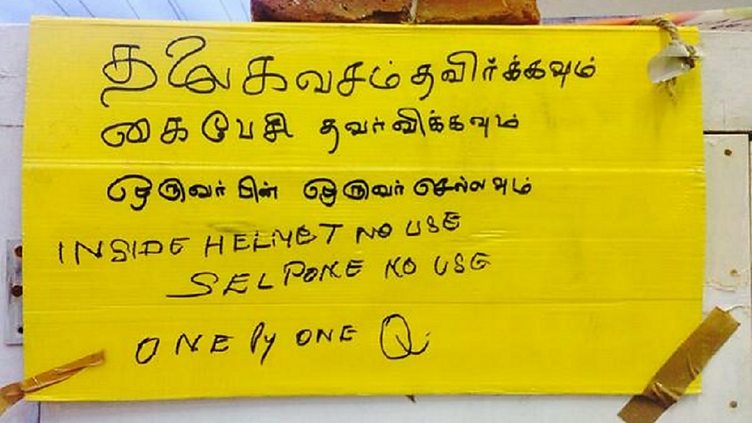 தலை கவசம் தவிர்க்கவும்
கைபேசி தவர்விக்கவும்
ஒருவர் பின் ஒருவர் செல்லவும்
INSIDE HELMET NO USE
SELPONE NO USE
ONE By ONE Q